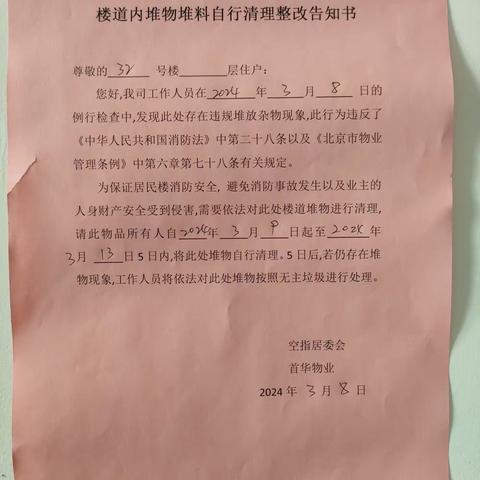 楼道内堆物堆料自行清理整改告知书
尊敬的 32 号楼______层住户：
您好,我司工作人员在 2024 年 3 月 8 日的
例行检查中,发现此处存在违规堆放杂物现象,此行为违反了
《中华人民共和国消防法》中第二十八条以及《北京市物业
管理条例》中第六章第七十八条有关规定。
为保证居民楼消防安全，避免消防事故发生以及业主的
人身财产安全受到侵害,需要依法对此处楼道堆物进行清理,
请此物品所有人自 2024 年 3 月 9 日起至 2024 年
3 月 13 日 5 日内,将此处堆物自行清理。5 日后,若仍存在堆
物现象,工作人员将依法对此处堆物按照无主垃圾进行处理。
空指居委会
首华物业
2024 年 3 月 8 日